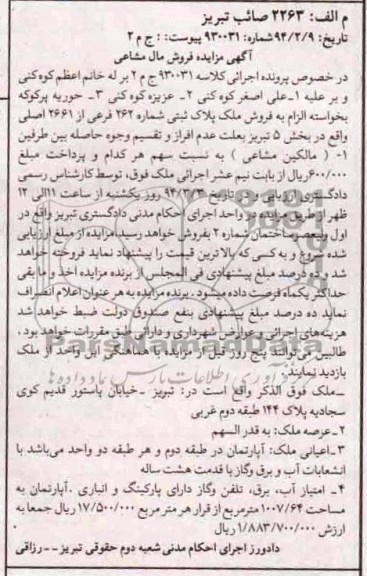 م الف: ۲۲۶۳ صائب تبریز
تاریخ: ۹۴/۲/۹ شماره: ۹۳۰۰۳۱ پیوست: : ج م ۲
آگهی مزایده فروش مال مشاعی
در خصوص پرونده اجرائی کلاسه ۹۳۰۰۳۱ ج م ۲ بر له خانم اعظم کوه کنی
و بر علیه ۱-علی اصغر کوه کنی ۲- عزیزه کوه کنی ۳- حوریه پرکوکه
بخواسته الزام به فروش ملک پلاک ثبتی شماره ۲۶۲ فرعی از ۲۶۶۱ اصلی
واقع در بخش ۵ تبریز بعلت عدم افراز و تقسیم وجوه حاصله بین طرفین
۱- ( مالکین مشاعی ) به نسبت سهم هر کدام و پرداخت مبلغ
۶۰۰/۰۰۰ ریال از بابت نیم عشر اجرائی ملک فوق، توسط کارشناس رسمی
دادگستری ارزیابی و در تاریخ ۹۴/۳/۳ روز یکشنبه از ساعت ۱۱الی ۱۲
ظهر از طریق مزایده در واحد اجرای احکام مدنی دادگستری تبریز واقع در
اول ولیعصر ساختمان شماره ۲ بفروش خواهد رسید.مزایده از مبلغ ارزیابی
شده شروع و به کسی که بالاترین قیمت را پیشنهاد نماید فروخته خواهد
شد و ده درصد مبلغ پیشنهادی فی المجلس از برنده مزایده اخذ و ما بقی
حداکثر یکماه فرصت داده میشود . برنده مزایده به هر عنوان اعلام انصراف
نماید ده درصد مبلغ پیشنهادی بنفع صندوق دولت ضبط خواهد شد
هزینه‌های اجرائی و عوارض شهرداری و دارائی طبق مقررات خواهد بود .
طالبین می‌توانند پنج روز قبل از مزایده با هماهنگی این واحد از ملک
بازدید نمایند.
-ملک فوق الذکر واقع است در: تبریز -خیابان پاستور قدیم کوی
سجادیه پلاک ۱۴۴ طبقه دوم غربی
۲-عرصه ملک: به قدر السهم
۳-اعیانی ملک: آپارتمان در طبقه دوم و هر طبقه دو واحد می‌باشد با
انشعابات آب و برق وگاز با قدمت هشت ساله
۴- امتیاز آب، برق، تلفن وگاز دارای پارکینگ و انباری .آپارتمان به
مساحت ۱۰۰۷/۶۴ مترمربع از قرار هر متر مربع ۱۷/۵۰۰/۰۰۰ ریال جمعا به
ارزش ۱/۸۸۳/۷۰۰/۰۰۰ ریال
دادورز اجرای احکام مدنی شعبه دوم حقوقی تبریز -- رزاقی
ParsNamadData